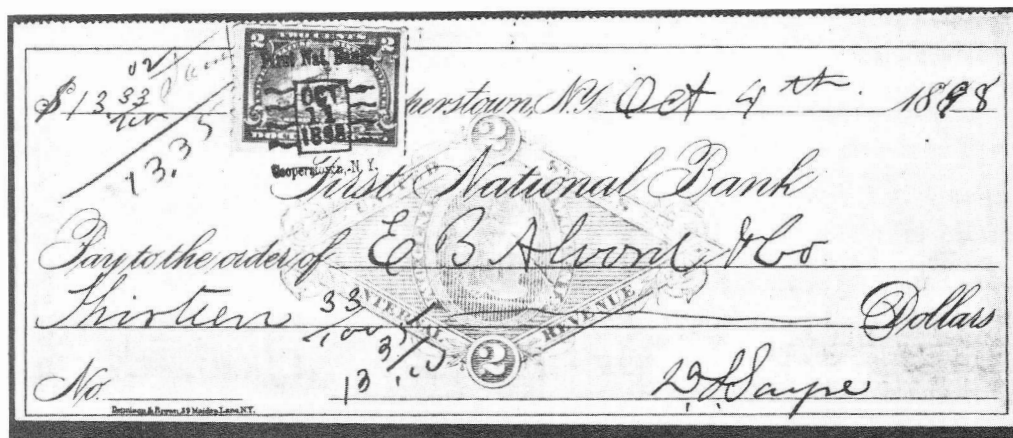 2 TWO CENTS 2
First Nat. Bank,
OCT
11
1898
Cooperstown, N. Y.
$ 13 33/100
13.3
perstown, N.Y. Oct 4th. 1898
2
First National Bank
Pay to the order of E B Alvord & Co
Thirteen 33/100 Dollars
INTERNAL REVENUE
2
13
No.
Dennison & Brown, 29 Maiden Lane N.Y.